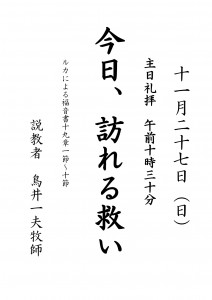 十一月二十七日（日）
主日礼拝　午前十時三十分
今日、訪れる救い
ルカによる福音書十九章一節～十節
説教者　鳥井一夫牧師